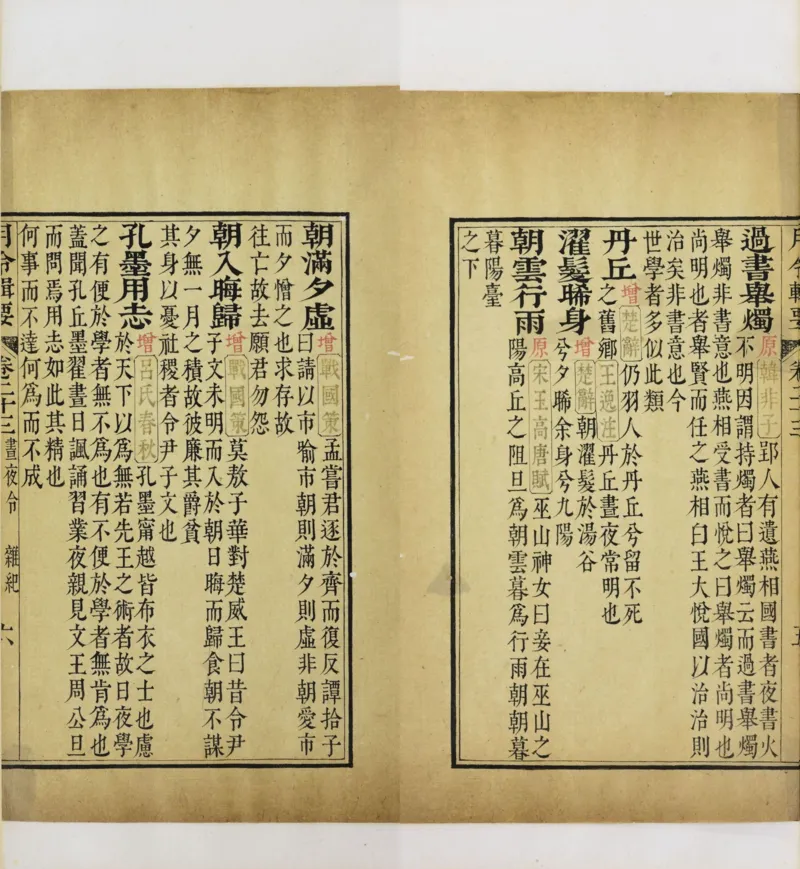 過書舉燭
原韓非子郢人有遺燕相國書者夜書火
不明因謂持燭者曰舉燭云而過書舉燭
舉燭非書意也燕相受書而悅之曰舉燭者尚明也
尚明也者舉賢而任之燕相白王大悅國以治治則
治矣非書意也今
世學者多似此類
丹丘
增楚辭仍羽人於丹丘兮留不死
之舊鄉王逸注丹丘晝夜常明也
濯髮晞身
增楚辭朝濯髮於湯谷
兮夕晞余身兮九陽
朝雲行雨
原宋玉高唐賦巫山神女曰妾在巫山之
陽高丘之阻旦爲朝雲暮爲行雨朝朝暮
暮陽臺
之下
朝滿夕虛
增戰國策孟嘗君逐於齊而復反譚拾子
曰請以市喻市朝則滿夕則虛非朝愛市
而夕憎之也求存故
往亡故去願君勿怨
朝入晦歸
增戰國策莫敖子華對楚威王曰昔令尹
子文未明而入於朝日晦而歸食朝不謀
夕無一月之積故彼廉其爵貧
其身以憂社稷者令尹子文也
孔墨用志
增呂氏春秋孔墨甯越皆布衣之士也慮
於天下以爲無若先王之術者故日夜學
之有便於學者無不爲也有不便於學者無肯爲也
蓋聞孔丘墨翟晝日諷誦習業夜親見文王周公旦
而問焉用志如此其精也
何事而不達何爲而不成
月令輯要 卷二十三 晝夜令 雜紀 六